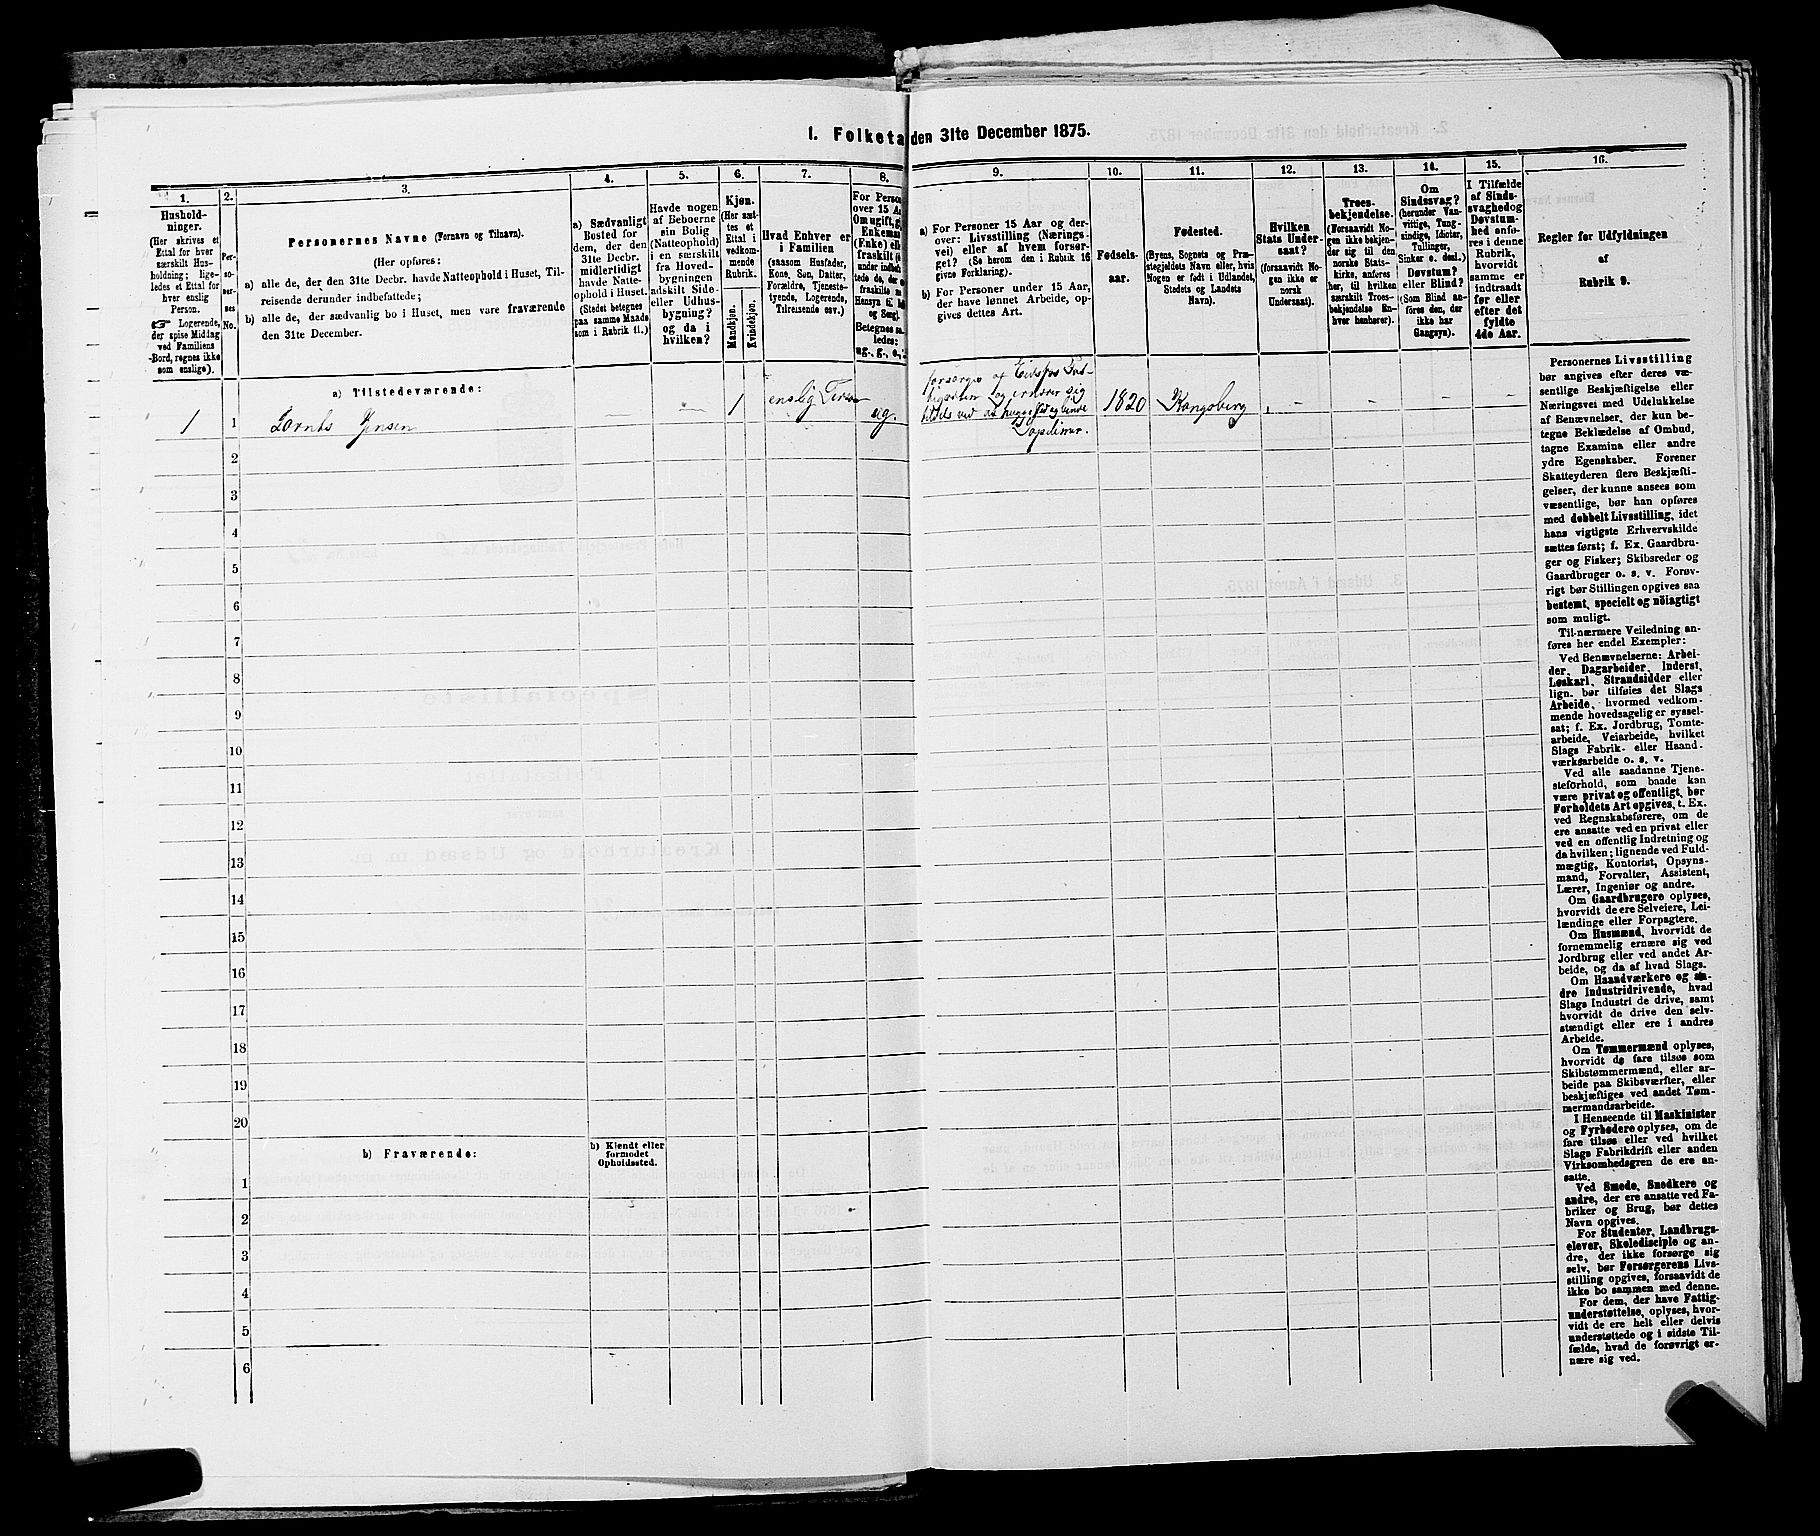 1. Folketa den 31te December 1875.
1.
Hushold-
ninger.
(Her skrives et
Ettal for hver
særskilt Hus-
holdning; lige-
ledes et Ettal for
hver enslig
Person.
☞ Logerende,
der spise Middag
ved Familiens
Bord, regnes ikke
som enslige).
2.
Per-
so-
ner-
nes
No.
3.
Personernes Navne (Fornavn og Tilnavn).
(Her opføres:
a) alle de, der den 31te Decbr. havde Natteophold i Huset, Til-
reisende derunder indbefattede;
b) alle de, der sædvanlig bo i Huset, men vare fraværende
den 31te December.
4.
a) Sædvanligt
Bosted for
dem, der den
31te Decbr.
midlertidigt
havde Natte-
ophold i Huset.
(Stedet betegnes
paa samme Maade
som i Rubrik 11.)
5.
Havde nogen
af Beboerne
sin Bolig
(Natteophold)
i en særskilt
fra Hoved-
bygningen
adskilt Side-
eller Udhus-
bygning?
og da i
hvilken?
6.
Kjøn.
(Her sæt-
tes et
Ettal i
vedkom-
mende
Rubrik.
Mandkjøn.
Kvindekjøn.
7.
Hvad Enhver er
i Familien
(saasom Husfader,
Kone, Søn, Datter,
Forældre, Tjeneste-
tyende, Logerende,
Tilreisende osv.)
8.
For Perso
over 15 Aa
Om ugift, g
Enkema
(Enke) ell
fraskilt
under indbe
tede de, der
fraskilte
Hensyn til
og Seng).
Betegnes sa
ledes:
ug., g., e.,
9.
a) For Personer 15 Aar og der-
over: Livsstilling (Nærings-
vei) eller af hvem forsør-
get? (Se herom den i Rubrik 16
givne Forklaring).
b) For Personer under 15 Aar,
der have lønnet Arbeide, op-
gives dettes Art.
10.
Fødsels-
aar.
11.
Fødested.
(Byens, Sognets og Præ-
stegjeldets Navn eller, hvis
Nogen er født i Udlandet,
Stedets og Landets
Navn).
12.
Hvilken
Stats Under-
saat?
(forsaavidt No-
gen ikke er
norsk
Undersaat).
13.
Troes-
bekjendelse.
(Forsaavidt No-
gen ikke bekjen-
der sig til den
norske Stats-
kirke, anføres
her, til hvilken
særskilt Troes-
bekjendelse En-
hver henhører).
14.
Om
Sindssvag?
(herunder Van-
vittige, Tung-
sindige, Idioter,
Tullinger,
Sinker o. desl.)
Døvstum?
eller Blind?
(Som Blind an-
føres den, der
ikke har
Gangsyn).
15.
I Tilfælde
af Sinds-
svaghedog
Døvstum-
hed anfø-
res i denne
Rubrik,
hvorvidt
samme er
indtraadt
før eller
efter det
fyldte
4de Aar.
16.
Regler for Udfyldningen
af
Rubrik 9.
a) Tilstedeværende:
1 1 Jensen — — 1 enslig Person ug.
forsørges af
og ernærer sig
tildels ved at hugge
1820 Kongsberg . — — — —
2
3
4
5
6
7
8
9
10
11
12
13
14
15
16
17
18
19
20
b) Fraværende:
b) Kjendt eller
formodet
Opholdssted.
1
2
3
4
5
6
Personernes Livsstilling
bør angives efter deres væ-
sentlige Beskjæftigelse eller
Næringsvei med Udelukkelse
af Benævnelser, der kun be-
tegne Beklædelse af Ombud,
tagne Examina eller andre
ydre Egenskaber. Forener
Skatteyderen flere Beskjæfti-
gelser, der kunne ansees som
væsentlige, bør han opføres
med dobbelt Livsstilling, idet
hans vigtigste Erhvervskilde
sættes først; f. Ex. Gaardbru-
ger og Fisker; Skibsreder og
Gaardbruger o. s. v. Forøv-
rigt bør Stillingen opgives saa
bestemt, specielt og nøiagtigt
som muligt.
Til nærmere Veiledning an-
føres her endel Exempler:
Ved Benævnelserne: Arbei-
der, Dagarbeider, Inderst,
Løskarl, Strandsidder eller
lign. bør tilføies det Slags
Arbeide, hvormed vedkom-
mende hovedsagelig er syssel-
sat; f. Ex. Jordbrug, Tomte-
arbeide, Veiarbeide, hvilket
Slags Fabrik- eller Haand-
værksarbeide o. s. v.
Ved alle saadanne Tjene-
steforhold, som baade kan
være privat og offentligt, bør
Forholdets Art opgives, t. Ex.
ved Regnskabsførere, om de
ere ansatte ved en privat eller
ved en offentlig Indretning og
da hvilken; lignende ved Fuld-
mægtig, Kontorist, Opsyns-
mand, Forvalter, Assistent,
Lærer, Ingeniør og andre.
Om Gaardbrugere oplyses,
hvorvidt de ere Selveiere, Lei-
lændinge eller Forpagtere.
Om Husmænd, hvorvidt de
fornemmelig ernære sig ved
Jordbrug eller ved andet Ar-
beide, og da af hvad Slags.
Om Haandværkere og an-
dre Industridrivende, hvad
Slags Industri de drive, samt
hvorvidt de drive den selv-
stændigt eller ere i andres
Arbeide.
Om Tømmermænd oplyses,
hvorvidt de fare tilsøs som
Skibstømmermænd, eller ar-
beide paa Skibsværfter, eller
beskjæftiges ved andet Tøm-
mermandsarbeide.
I Henseende til Maskinister
og Fyrbødere oplyses, om de
fare tilsøs eller ved hvilket
Slags Fabrikdrift eller anden
Virksomhedsgren de ere an-
satte.
Ved Smede, Snedkere og
andre, der ere ansatte ved Fa-
briker og Brug, bør dettes
Navn opgives.
For Studenter, Landbrugs-
elever, Skoledisciple og an-
dre, der ikke forsørge sig
selv, bør Forsørgerens Livs-
stilling opgives, forsaavidt de
ikke bo sammen med denne.
For dem, der have Fattig-
understøttelse, oplyses, hvor-
vidt de ere helt eller delvis
understøttede og i sidste Til-
fælde, hvad de forøvrigt er-
nære sig ved.